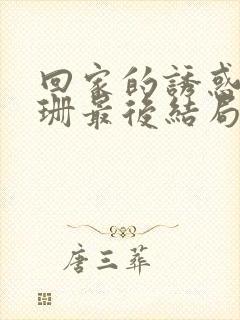 回家的誘惑
珊最後結局
唐三葬